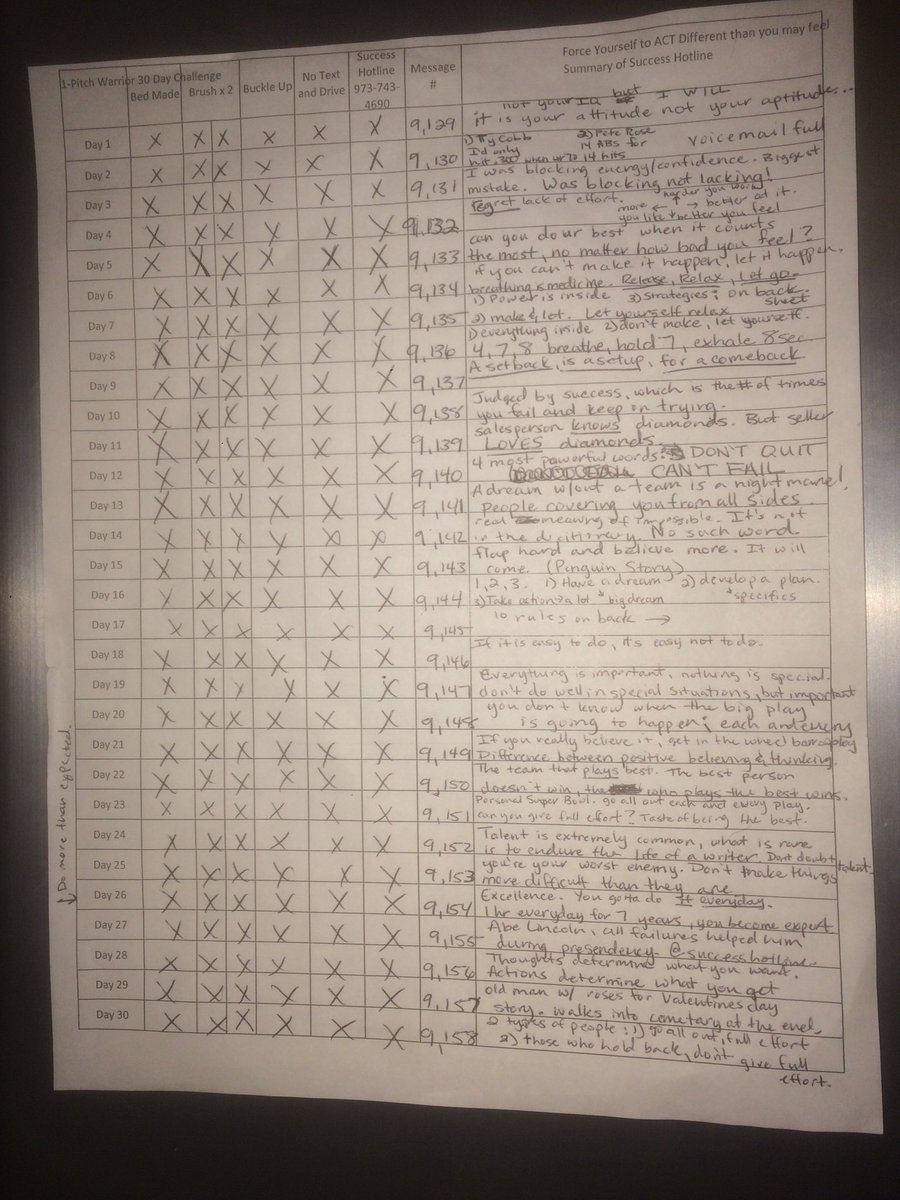 1-Pitch Warrior 30 Day Challenge
Force Yourself to ACT Different than you may feel
Bed Made Brush x 2 Buckle Up No Text and Drive Success Hotline 973-743-4690 Message # Summary of Success Hotline
not your IQ but I WILL
Day 1 X X X X X X 9,129 it is your attitude not your aptitude...
1) Ty Cobb 2) Pete Rose
I'd only 14 ABs for voicemail full
Day 2 X X X X X X 9,130 hit .300 when up to 14 hits
I was blocking energy/confidence. Biggest
Day 3 X X X X X X 9,131 mistake. Was blocking not lacking!
Regret lack of effort. harder you work
more better at it.
Day 4 X X X X X X 9,132 you like better you feel
can you do ur best when it counts
Day 5 X X X X X X 9,133 the most, no matter how bad you feel?
if you can't make it happen, let it happen.
Day 6 X X X X X X 9,134 breathing is medicine. Release, Relax, Let go
1) Power is inside 3) Strategies: on back
Day 7 X X X X X X 9,135 2) make & let. Let yourself relax sheet
1) everything inside 2) don't make, let yourself.
Day 8 X X X X X X 9,136 4, 7, 8 breathe, hold 7, exhale 8 sec
Day 9 X X X X X X 9,137 A setback, is a setup, for a comeback
Judged by success, which is the # of times
Day 10 X X X X X X 9,138 you fail and keep on trying.
salesperson knows diamonds. But seller
Day 11 X X X X X X 9,139 LOVES diamonds.
4 most powerful words: DON'T QUIT
Day 12 X X X X X X 9,140 CAN'T FAIL
A dream w/out a team is a nightmare!
Day 13 X X X X X X 9,141 people covering you from all sides
real meaning of impossible. It's not
Day 14 X X X X X X 9,142 in the dictionary. No such word.
flap hard and believe more. It will
Day 15 X X X X X X 9,143 come. (Penguin Story)
1, 2, 3. 1) Have a dream 2) develop a plan.
Day 16 X X X X X X 9,144 3) Take action → a lot big dream specifics
Day 17 X X X X X X 9,145 10 rules on back →
Day 18 X X X X X X 9,146 If it is easy to do, it's easy not to do.
Everything is important, nothing is special.
Day 19 X X X X X X 9,147 don't do well in special situations, but important
you don't know when the big play
Day 20 X X X X X X 9,148 is going to happen; each and every play
If you really believe it, get in the wheel barrow
Day 21 X X X X X X 9,149 Difference between positive believing & thinking.
The team that plays best. The best person
Day 22 X X X X X X 9,150 doesn't win, the who plays the best wins.
Personal Super Bowl. go all out each and every play.
Day 23 X X X X X X 9,151 can you give full effort? Taste of being the best.
Talent is extremely common, what is rare
Day 24 X X X X X X 9,152 is to endure the life of a writer. Dont doubt talent.
you're your worst enemy. Don't make things
Day 25 X X X X X X 9,153 more difficult than they are
Excellence. You gotta do it everyday.
Day 26 X X X X X X 9,154 1 hr everyday for 7 years, you become expert
Abe Lincoln, all failures helped him
Day 27 X X X X X X 9,155 during presendency. @successhotline.
Thoughts determine what you want.
Day 28 X X X X X X 9,156 Actions determine what you get
old man w/ roses for Valentines day
Day 29 X X X X X X 9,157 story. walks into cemetary at the end.
2 types of people: 1) go all out, full effort
Day 30 X X X X X X 9,158 2) those who hold back, don't give full
effort.
↓ Do more than expected.